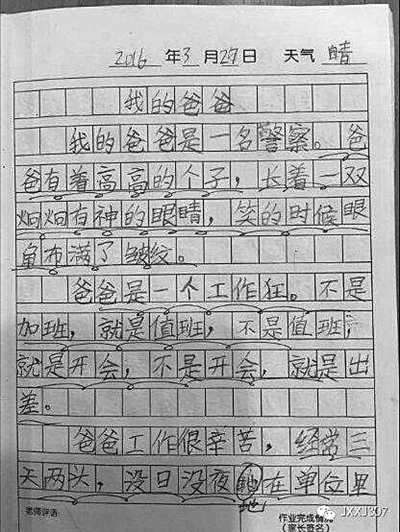 2016 年3 月27日 天气 晴
我的爸爸
我的爸爸是一名警察。爸
爸有着高高的个子，长着一双
炯炯有神的眼睛，笑的时候眼
角布满了皱纹。
爸爸是一个工作狂。不是
加班，就是值班，不是值班，
就是开会，不是开会，就是出
差。
爸爸工作很辛苦，经常三
天两头，没日没夜地在单位里
地
老师评语：
作业完成情况
（家长签名）
JXXJ307